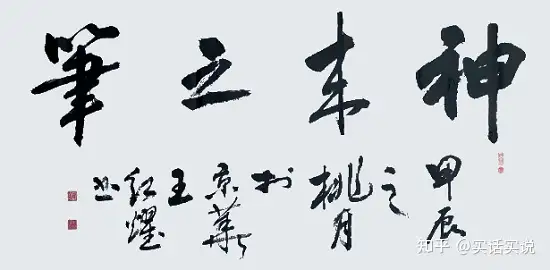 神来之笔
甲辰
之
桃月
於
京華
王
紅耀
书
知乎 @实话实说